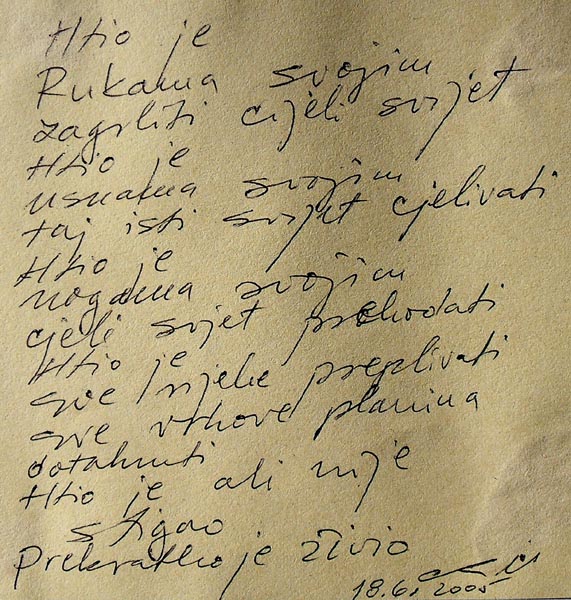 Htio je
Rukama svojim
zagrliti cijeli svijet
Htio je
usnama svojim
taj isti svijet cjelivati
Htio je
nogama svojim
cjeli svjet prehodati
Htio je
sve rijeke preplivati
sve vrhove planina
dotaknuti
Htio je ali nije
stigao
Prekratko je živio
18.6.2005